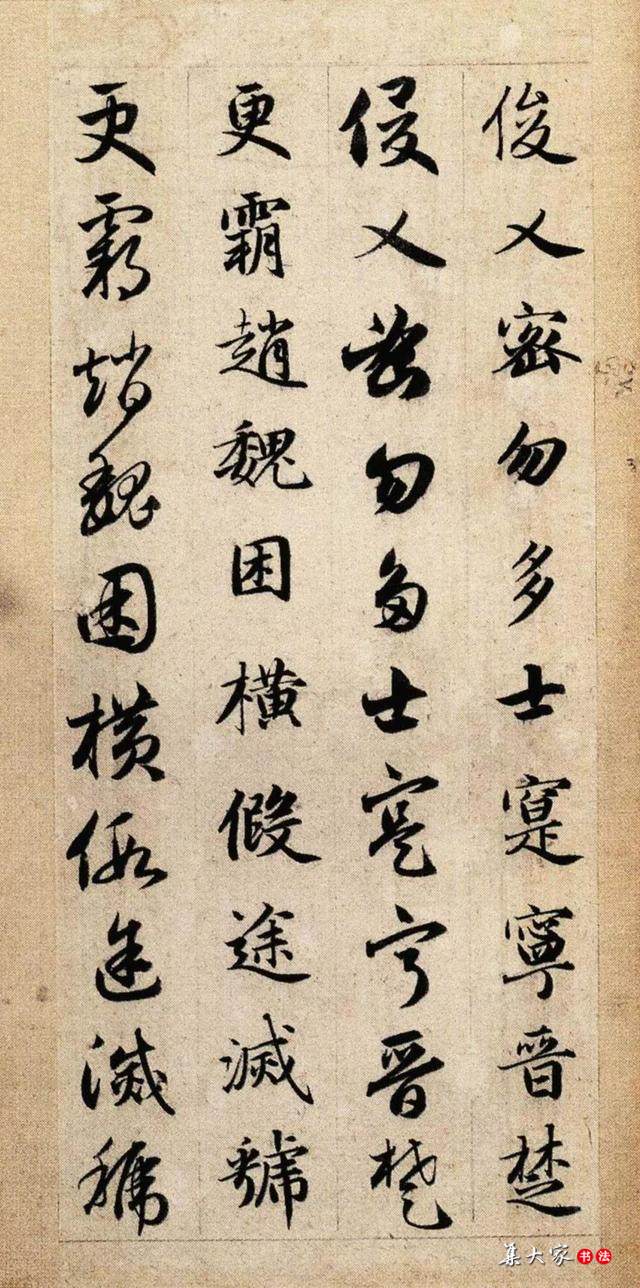 俊乂密勿多士寔寧晉楚
俊乂密勿多士寔寧晉楚
更霸趙魏困橫假途滅虢
更霸趙魏困橫假途滅虢
集大家书法